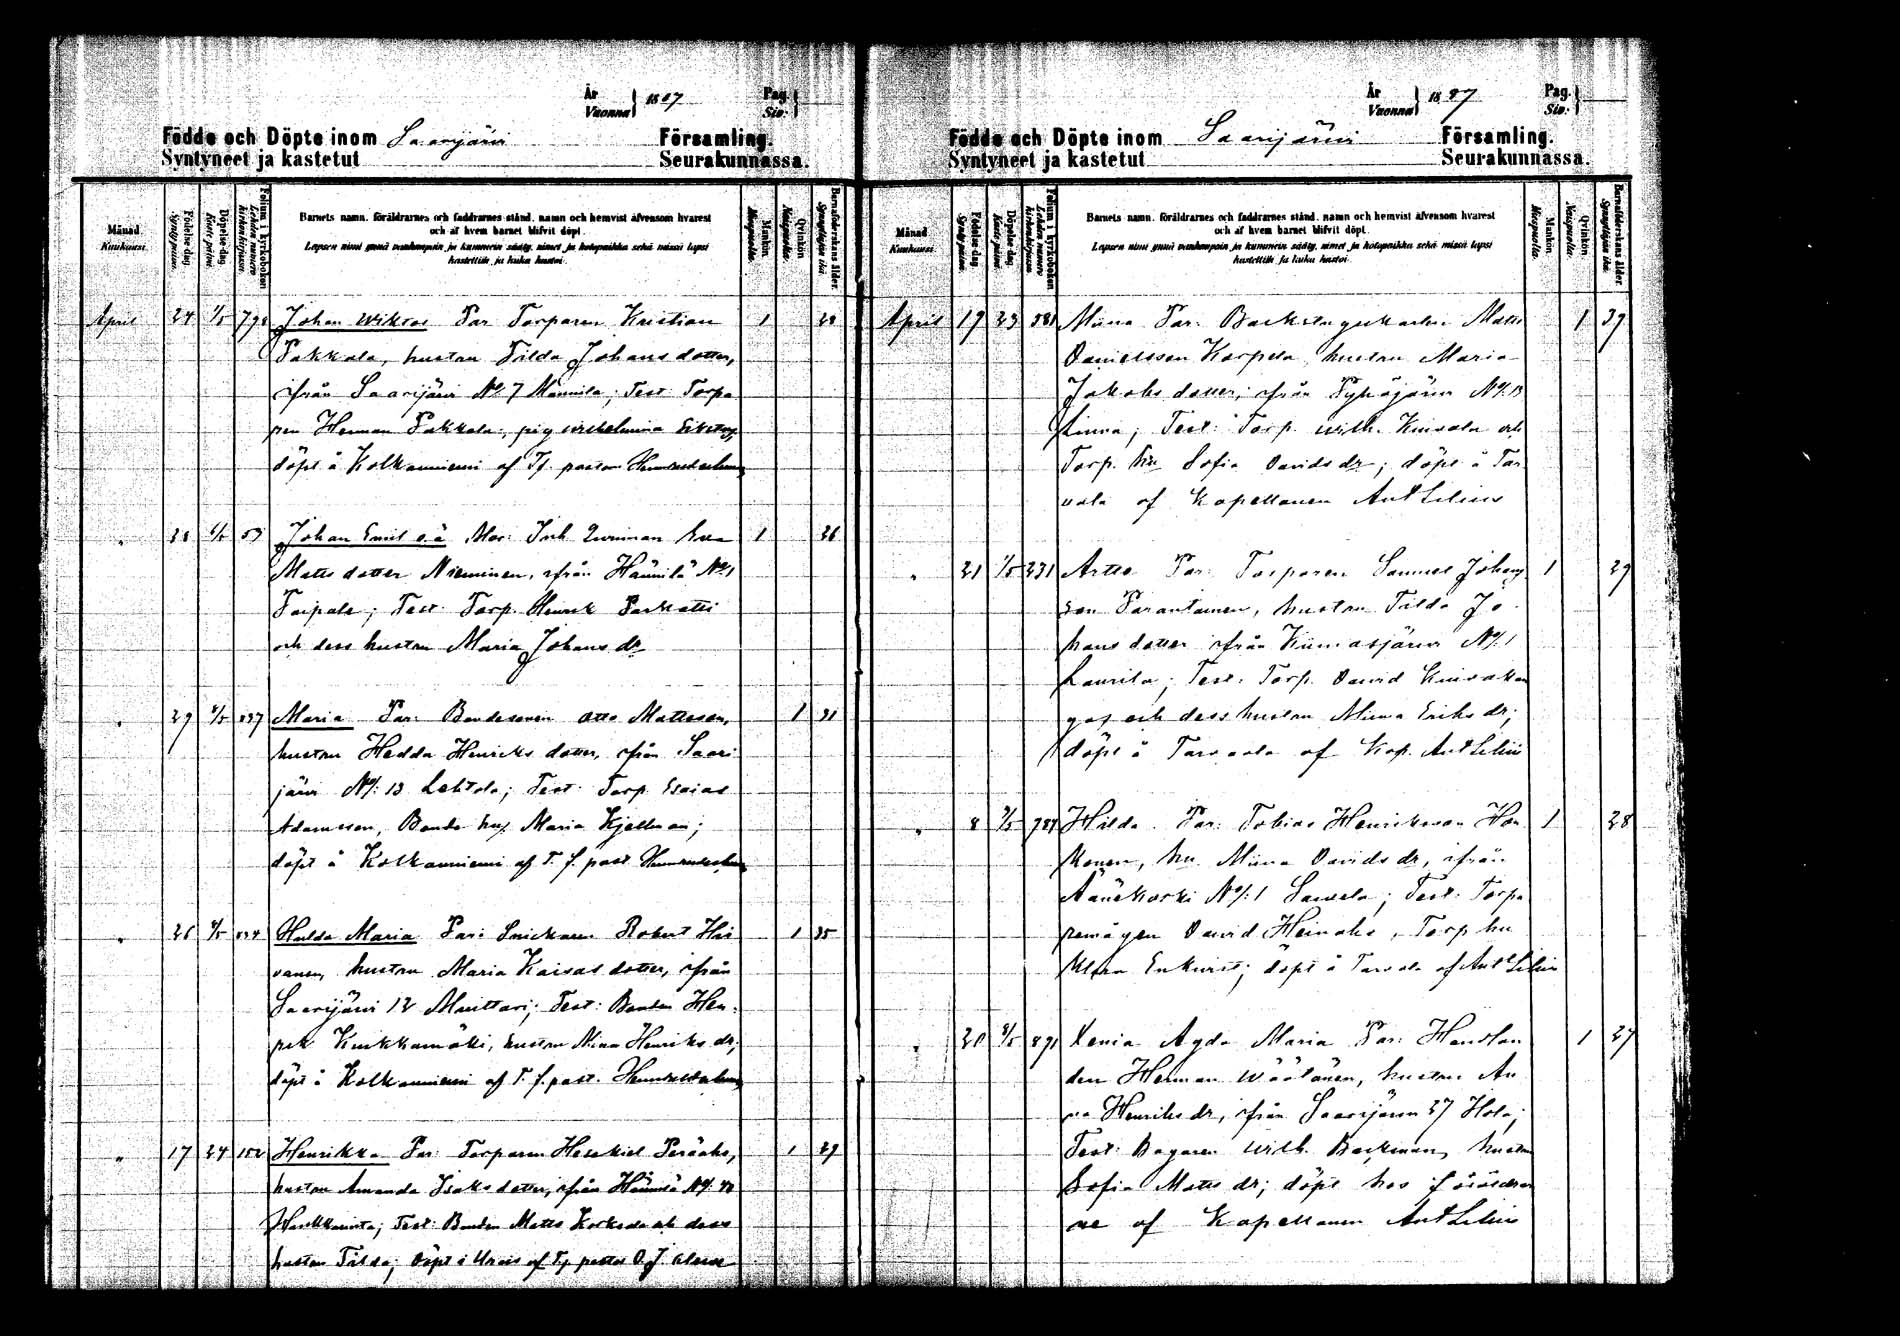 År
Vuonna } 1887
Pag.
Siv. }
Födde och Döpte inom Saarijärvi Församling.
Syntyneet ja kastetut Seurakunnassa.
Månad. Kuukausi.
Födelse-dag. Syntypäivä.
Döpelse-dag. Kastepäivä.
Folium i kyrkoboken. Lehden numero kirkonkirjassa.
Barnets namn, föräldrarnes och faddrarnes stånd, namn och hemvist äfvensom hvarest
och af hvem barnet blifvit döpt.
Lapsen nimi ynnä vanhempain ja kummein sääty, nimet ja kotopaikka sekä missä lapsi
kastettiin ja kuka kastoi.
Mankön. Miespuolia.
Qvinkön. Naispuolia.
Barnaföderskans ålder. Synnyttäjän ikä.
April 24 1/5 Johan Wiktor Par Torparen Kristian 1
Pakkala, hustru Tilda Johansdotter,
ifrån Saarijärvi No 7 Mannila; Test: Torpa
ren Herman Pakkala, pig Wilhelmina
döpt å Kolkanniemi af Tf. pastor
" 28 Johan Emil o.ä Mor: Inh Qvinnan Eva 1 26
Matts dotter Nieminen, ifrån Hännilä No 1
Taipale; Test: Torp. Henrik
och dess hustru Maria Johans dr
" 29 Maria Par: Bondesonen Otto Mattsson, 1 31
hustru Hedda Henriks dotter, ifrån Saari
järvi No: 13 Lehtola; Test: Torp Esaias
Adamsson, Bonde hu Maria Kjellman;
döpt å Kolkanniemi af T. f. past.
" 26 Hulda Maria Par: Snickaren Robert Hii 1 35
vanen, hustru Maria Kaisas dotter, ifrån
Saarijärvi 12 Muittari; Test: Bonden Hen-
rik Kukkamäki, hustru Mina Henriks dr,
döpt å Kolkanniemi af T. f. past.
" 17 24 152 Henrikka Par: Torparen Hesekiel Peräaho, 1 29
hustru Amanda Isaks dotter, ifrån Hännilä No:
Test: Bonden Matts och dess
hustru Tilda; döpt i Urais af Tf pastor O. J.
År
Vuonna } 1887
Pag.
Siv. }
Födde och Döpte inom Saarijärvi Församling.
Syntyneet ja kastetut Seurakunnassa.
Månad. Kuukausi.
Födelse-dag. Syntypäivä.
Döpelse-dag. Kastepäivä.
Folium i kyrkoboken. Lehden numero kirkonkirjassa.
Barnets namn, föräldrarnes och faddrarnes stånd, namn och hemvist äfvensom hvarest
och af hvem barnet blifvit döpt.
Lapsen nimi ynnä vanhempain ja kummein sääty, nimet ja kotopaikka sekä missä lapsi
kastettiin ja kuka kastoi.
Mankön. Miespuolia.
Qvinkön. Naispuolia.
Barnaföderskans ålder. Synnyttäjän ikä.
April 19 23 581 Miina Par: Backstugukarlen Matts 1 39
Danielsson Karpela, hustru Maria
Jakobs dotter, ifrån Pyhäjärvi No: 13
Linna; Test: Torp. Wilh. Kuisala och
Torp. hu Sofia Davids dr; döpt å Tar
vala af Kapellanen Ant Lilius
" 21 1/5 231 Artto Par: Torparen Samuel Johans 1 29
son Parantainen, hustru Tilda Jo
hans dotter ifrån Kiimasjärvi No: 1
Laurila; Test: Torp. David
och dess hustru Miina Eriks dr;
döpt å Tarvala af Kap. Ant Lilius
" 8 Hilda Par: Tobias Henriksson Hon 1 28
konen, hu Miina Davids dr, ifrån
Äänekoski No: 1 Savela; Test: Torpa
remågen David Heinaho, Torp hu
döpt å Tarvala af Ant Lilius
" 891 Xenia Agda Maria Par: Handlan 1 27
den Herman Wäätänen, hustru An
na Henriks dr, ifrån Saarijärvi 27 Hola;
Test: Bagaren Wilh. Backman, hustru
Sofia Matts dr; döpt hos föräldrar
ne af Kapellanen Ant Lilius